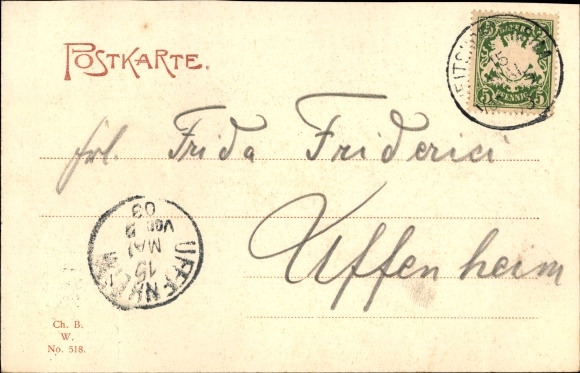 POSTKARTE.
BAYERN
5 PFENNIG 5
15
Frl. Frida Friderici
Uffenheim
UFFENHEIM
15
MAI
VOR 8
03
Ch. B.
W.
No. 518.